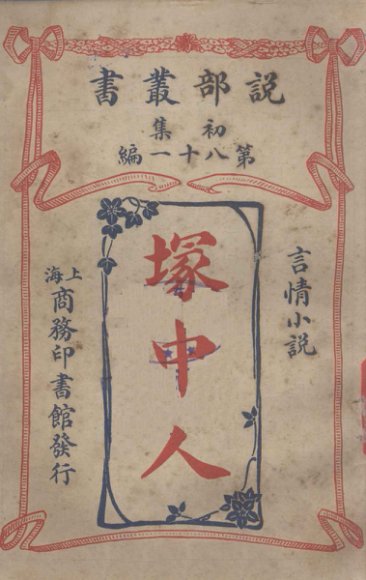 説部叢書
初集
第八十一編
言情小説
塚中人
上海商務印書館發行